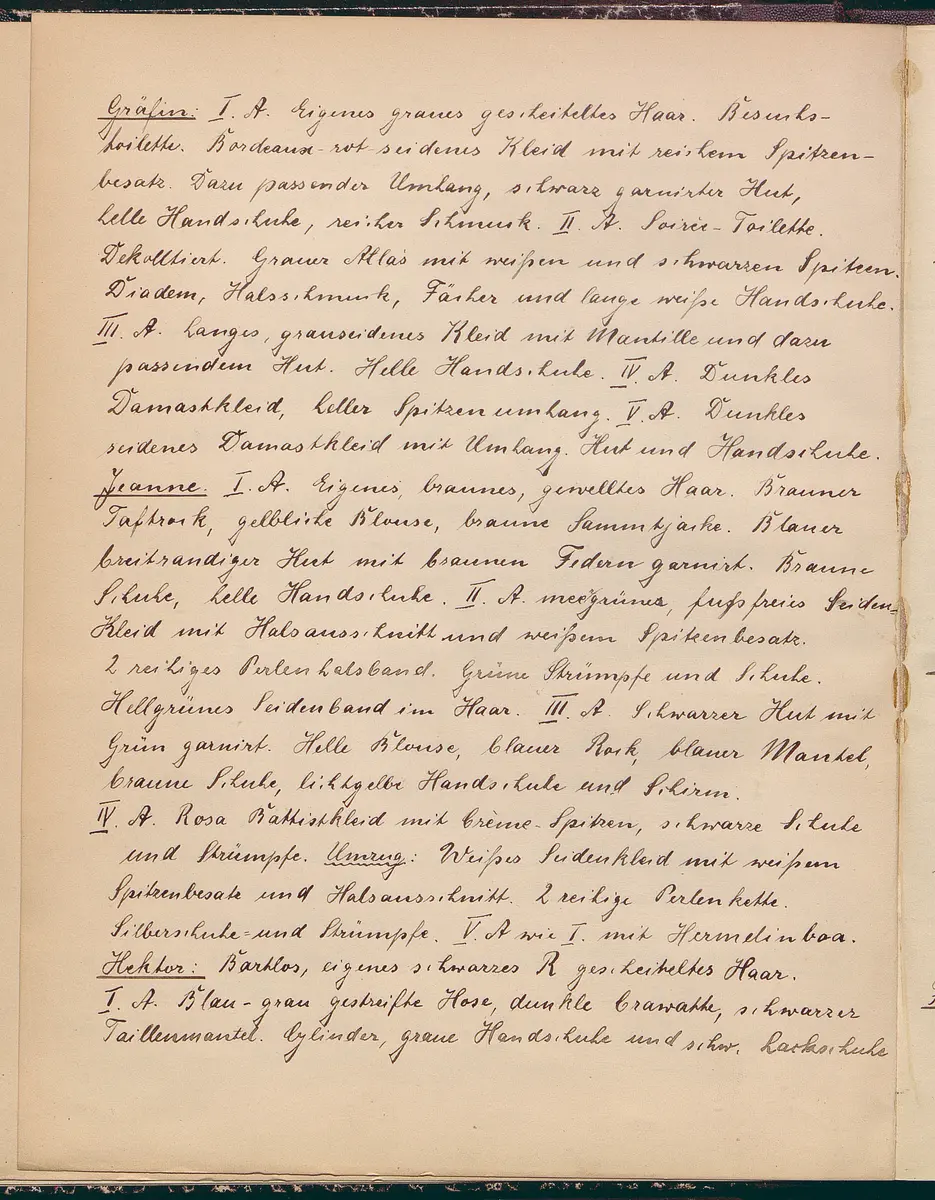 Gräfin: I. A. Eigenes graues gescheiteltes Haar. Besuchs-
toilette. Bordeaux-rot seidenes Kleid mit reichem Spitzen-
besatz. Dazu passender Umhang, schwarz garnirter Hut,
helle Handschuhe, reicher Schmuck. II. A. Soirée-Toilette.
Dekolltiert. Grauer Atlas mit weißen und schwarzen Spitzen.
Diadem, Halsschmuck, Fächer und lange weiße Handschuhe.
III. A. Langes, grauseidenes Kleid mit Mantille und dazu
passendem Hut. Helle Handschuhe. IV. A. Dunkles
Damastkleid, heller Spitzenumhang. V. A. Dunkles
seidenes Damastkleid mit Umhang. Hut und Handschuhe.
Jeanne. I. A. Eigenes, braunes, gewelltes Haar. Brauner
Taftrock, gelbliche Blouse, braune Sammtjacke. Blauer
breitrandiger Hut mit braunen Federn garnirt. Braune
Schuhe, helle Handschuhe. II. A. meergrünes, fußfreies Seiden-
Kleid mit Halsausschnitt und weißem Spitzenbesatz.
2 reihiges Perlenhalsband. Grüne Strümpfe und Schuhe.
Hellgrünes Seidenband im Haar. III. A. Schwarzer Hut mit
Grün garnirt. Helle Blouse, blauer Rock, blauer Mantel,
braune Schuhe, lichtgelbe Handschuhe und Schirm.
IV. A. Rosa Battistkleid mit Crème-Spitzen, schwarze Schuhe
und Strümpfe. Umzug: Weißes Seidenkleid mit weißem
Spitzenbesatz und Halsausschnitt. 2 reihige Perlenkette.
Silberschuhe-und Strümpfe. V. A wie I. mit Hermelinboa.
Hektor: Bartlos, eigenes schwarzes R gescheiteltes Haar.
I. A. Blau-grau gestreifte Hose, dunkle Crawatte, schwarzer
Taillenmantel. Cylinder, graue Handschuhe und schw. Lackschuhe